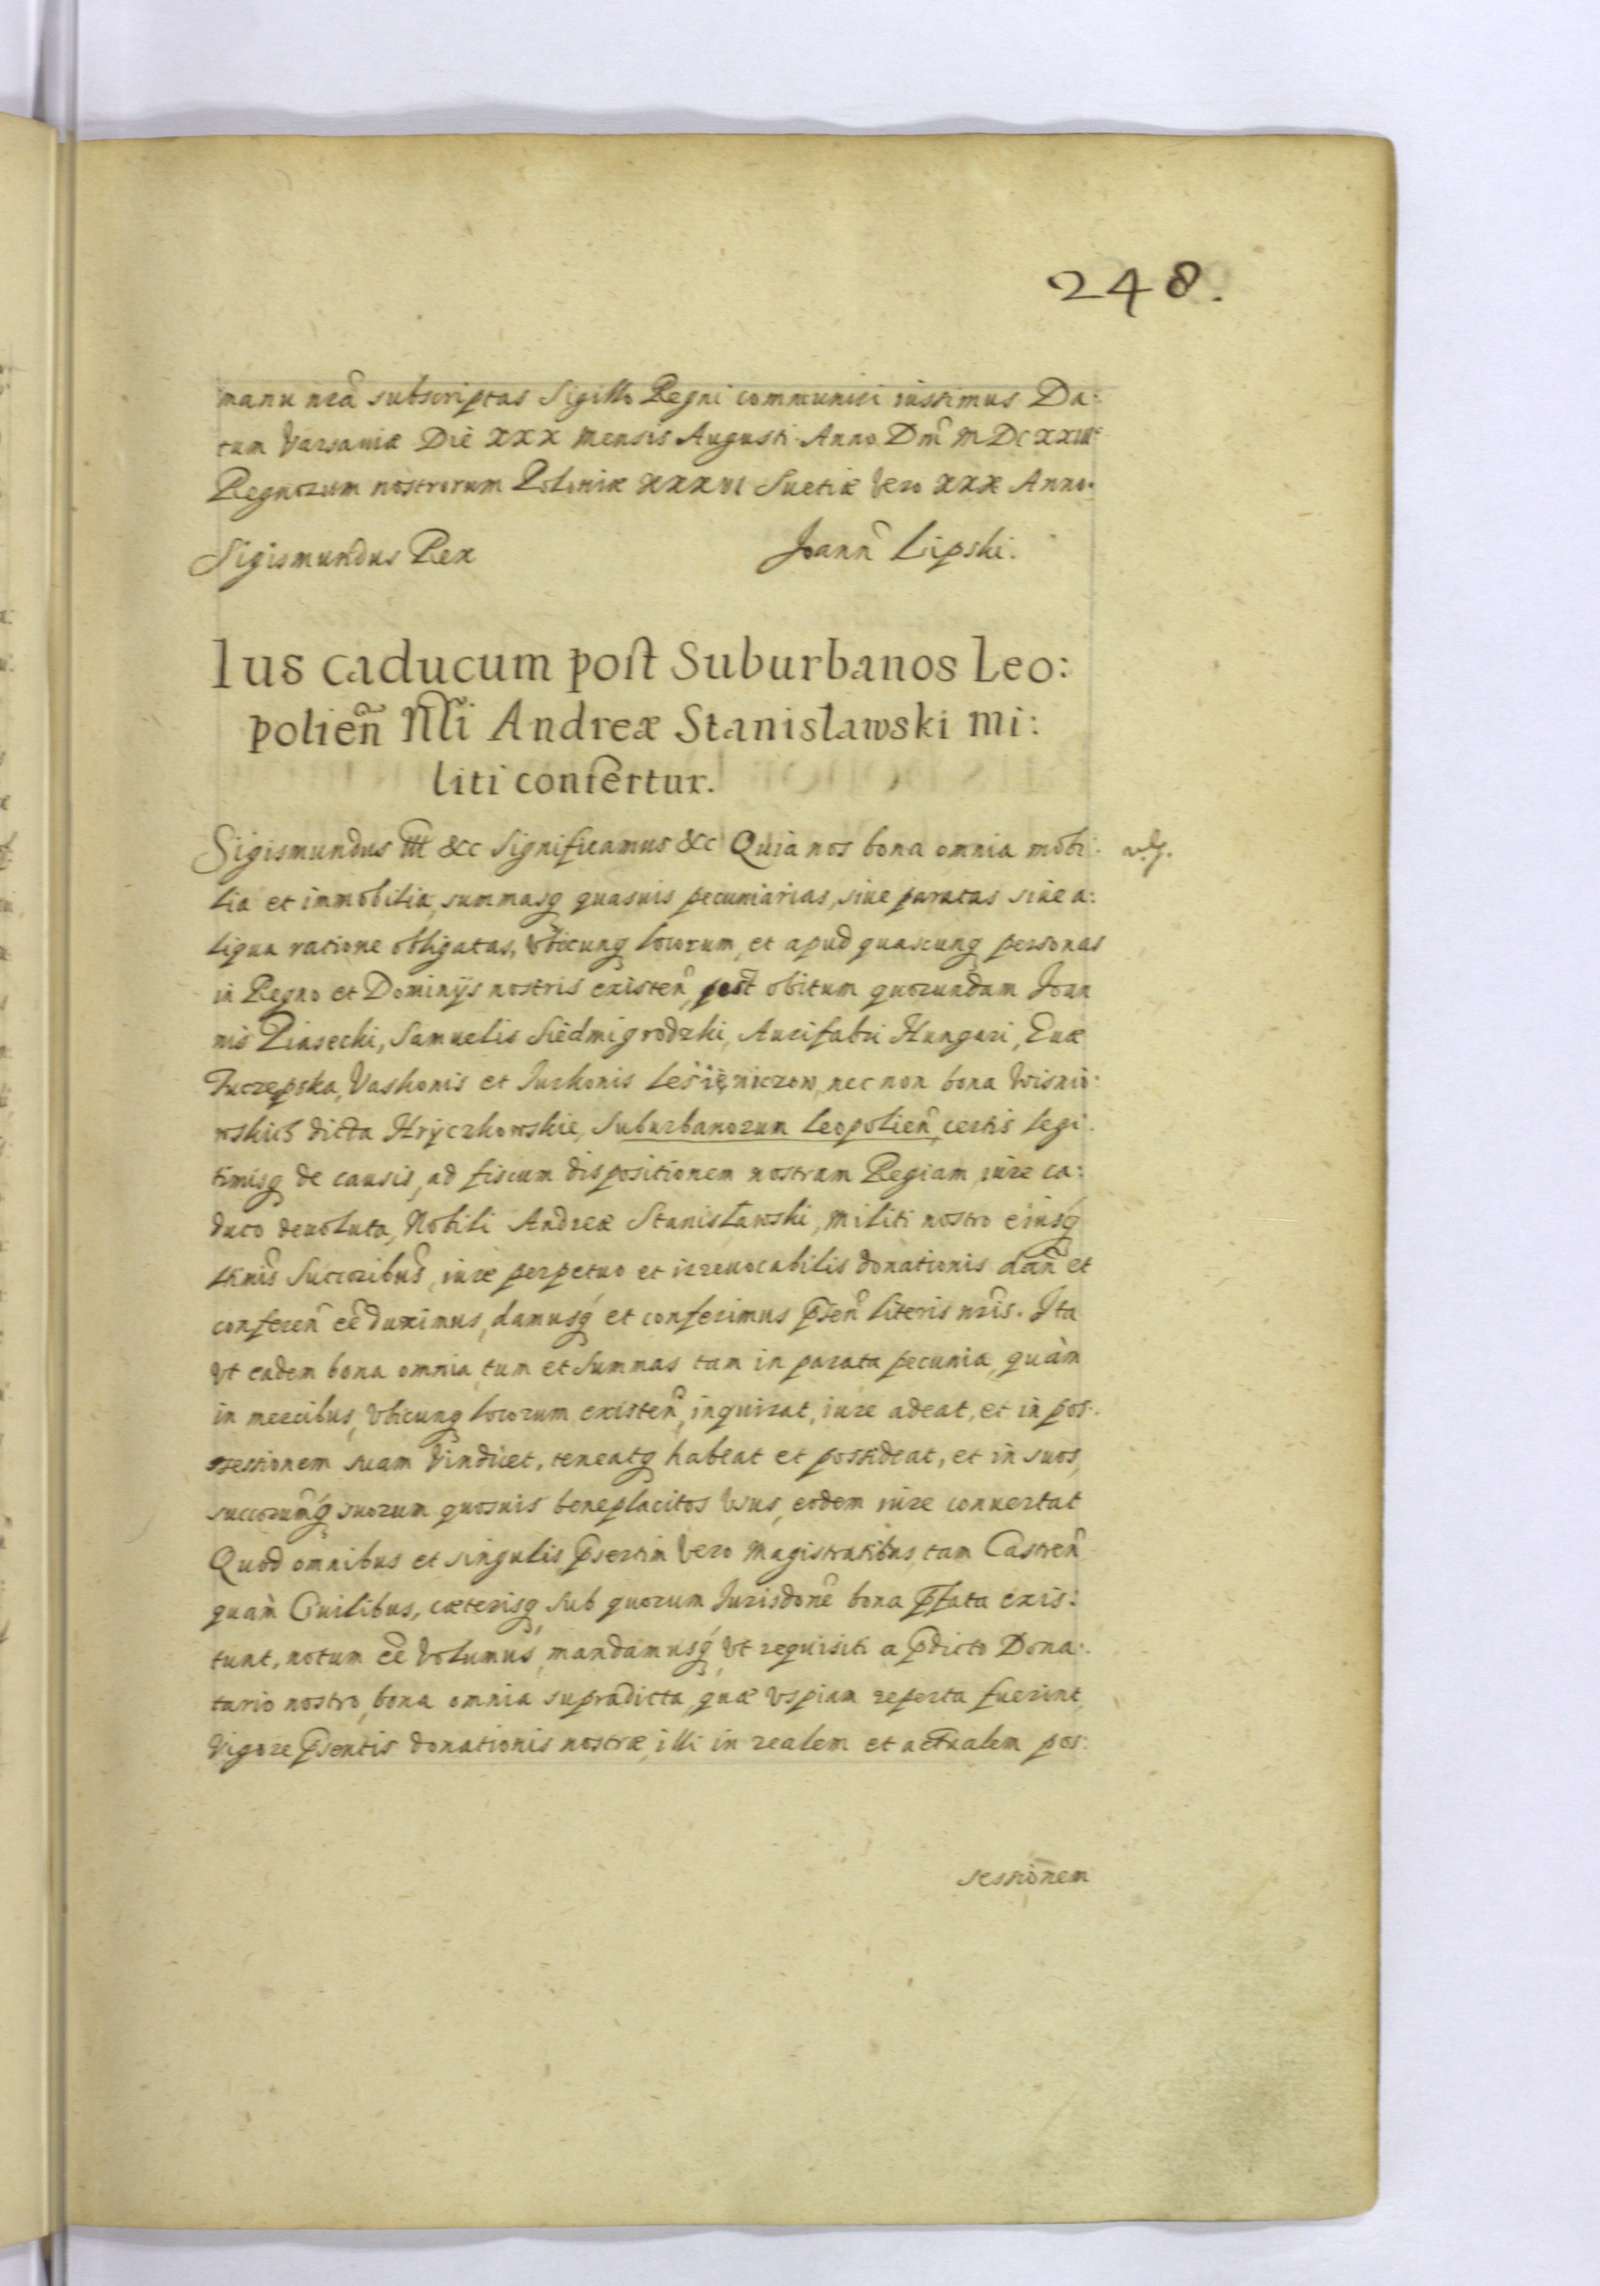 248.
manu nrã subscriptas Sigillo Regni communiri iussimus Da:
tum Varsaviæ Die XXX mensis Augusti Anno Dnĩ MDCXXIII
Regnorum nostrorum Poloniæ XXXVI Suetiæ Vero XXX Anno.
Sigismundus Rex
Joanñ Lipski.
Ius caducum post Suburbanos Leo:
polieñ Nłi Andreæ Stanisławski mi:
liti confertur.
Sigismundus III &c Significamus &c Quia nos bona omnia mobi:
lia et immobilia, summasq quasuis pecuniarias, siue paratas siue a:
liqua ratione obligatas, Vbicunq locorum, et apud quascunq personas
in Regno et Dominijs nostris existeñ, post obitum quorundam Joan
nis Piasecki, Samuelis Siedmigrodzki, Aurifabri Hungari, Euæ
Tuczepska, Vaskonis et Jurkonis Leśięniczow, nec non bona Wisnio:
wskich dicta Hryczkowskie, Suburbanorum Leopolieñ, certis legi:
timisq de causis, ad fiscum dispositionem nostram Regiam iure ca:
duco deuoluta, Nobili Andreæ Stanisławski, Militi nostro eiusq
Succoribus, iure perpetuo et irreuocabilis donationis dañ et
confereñ eẽ duximus, damusq et conferimus pñseñ literis nrĩs. Ita
Vt eadem bona omnia, tum et Summas tam in parata pecunia, quàm
in mercibus, Vbicunq locorum existeñ, inquirat, iure adeat, et in pos:
sessionem suam Vindicet, teneatq habeat et possideat, et in suos,
succorumq suorum quosuis beneplacitos Vsus, eodem iure conuertat
Quod omnibus et singulis, pñsertim Vero Magistratibus, tam Castreñ
quàm Ciuilibus, cæterisq, sub quorum Jurisdone bona pñfata exis:
tunt, notum eẽ Volumus, mandamusq, Vt requisiti a pñdicto Dona:
tario nostro, bona omnia supradicta, quæ Vspiam reperta fuerint
Vigore pñsentis donationis nostræ, illi in realem et actualem pos:
sessionem